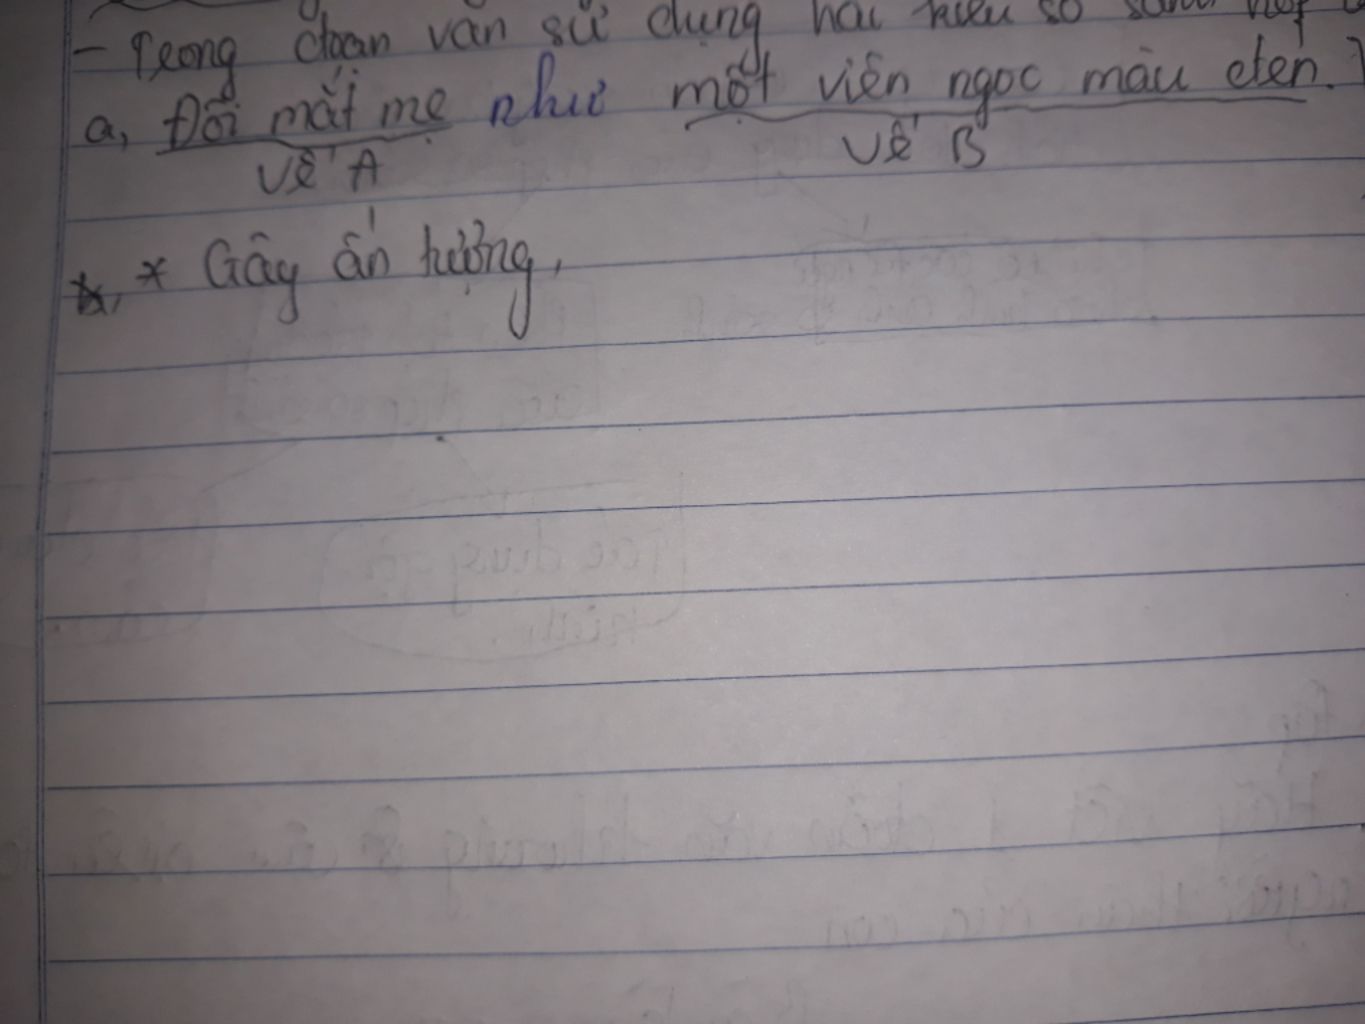 - Trong đoạn văn sử dụng hai kiểu so
a, Đôi mắt mẹ như một viên ngọc màu đen.
Vế A Vế B
* Gây ấn tượng,